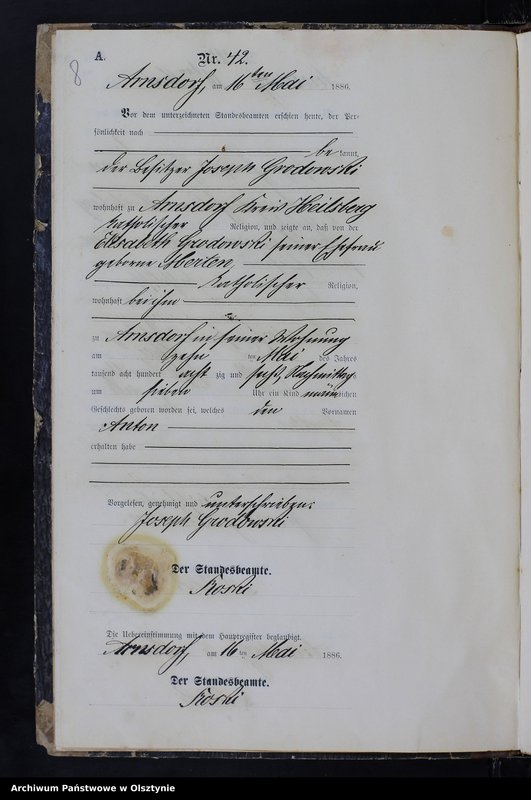 8
A.
Nr. 42.
Arnsdorf, am 16ten Mai 1886.
Vor dem unterzeichneten Standesbeamten erschien heute, der Per-
sönlichkeit nach
be kannt,
der Besitzer Joseph Grodowski
wohnhaft zu Arnsdorf Kreis Heilsberg
katholischer Religion, und zeigte an, daß von der
Elisabeth Grodowski seiner Ehefrau
geborne Merten
katholischer Religion,
wohnhaft bei ihm
zu Arnsdorf in seiner Wohnung
am zehn ten Mai des Jahres
tausend acht hundert acht zig und sechs, Nachmittags
um sieben Uhr ein Kind männlichen
Geschlechts geboren worden sei, welches den Vornamen
Anton
erhalten habe
Vorgelesen, genehmigt und unterschrieben:
Joseph Grodowski
Der Standesbeamte.
Roski
Die Uebereinstimmung mit dem Hauptregister beglaubigt.
Arnsdorf, am 16 ten Mai 1886.
Der Standesbeamte.
Roski
Archiwum Państwowe w Olsztynie